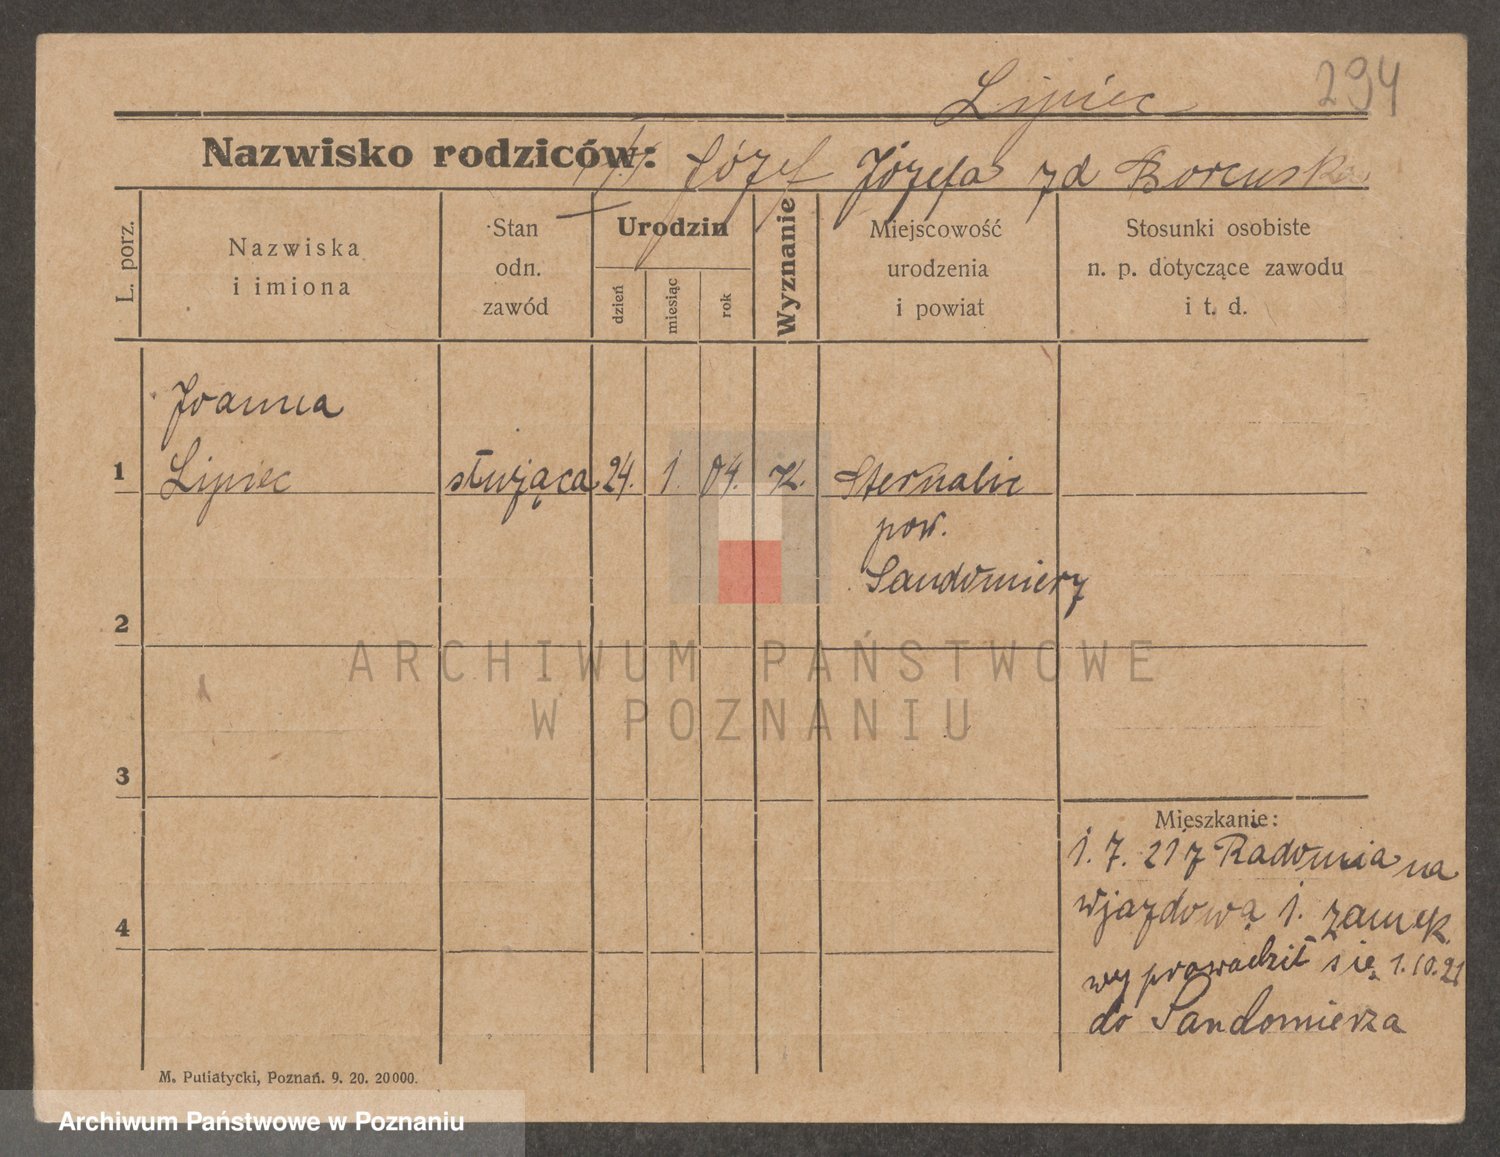 Lipiec 294
Nazwisko rodziców: Józef Józefa zd
L. porz.
Nazwiska
i imiona
Stan
odn.
zawód
Urodzin
dzień
miesiąc
rok
Wyznanie
Miejscowość
urodzenia
i powiat
Stosunki osobiste
n. p. dotyczące zawodu
i t. d.
Joanna
1 Lipiec służąca 24. 1. 04. K.
pow.
Sandomierz
2
ARCHIWUM PAŃSTWOWE
W POZNANIU
3
Mieszkanie:
1. 7. 21 z Radomia na
wjazdową 1. zamek.
4
wyprowadził się 1.10.21
do Sandomierza
M. Putiatycki, Poznań. 9. 20. 20000.
Archiwum Państwowe w Poznaniu